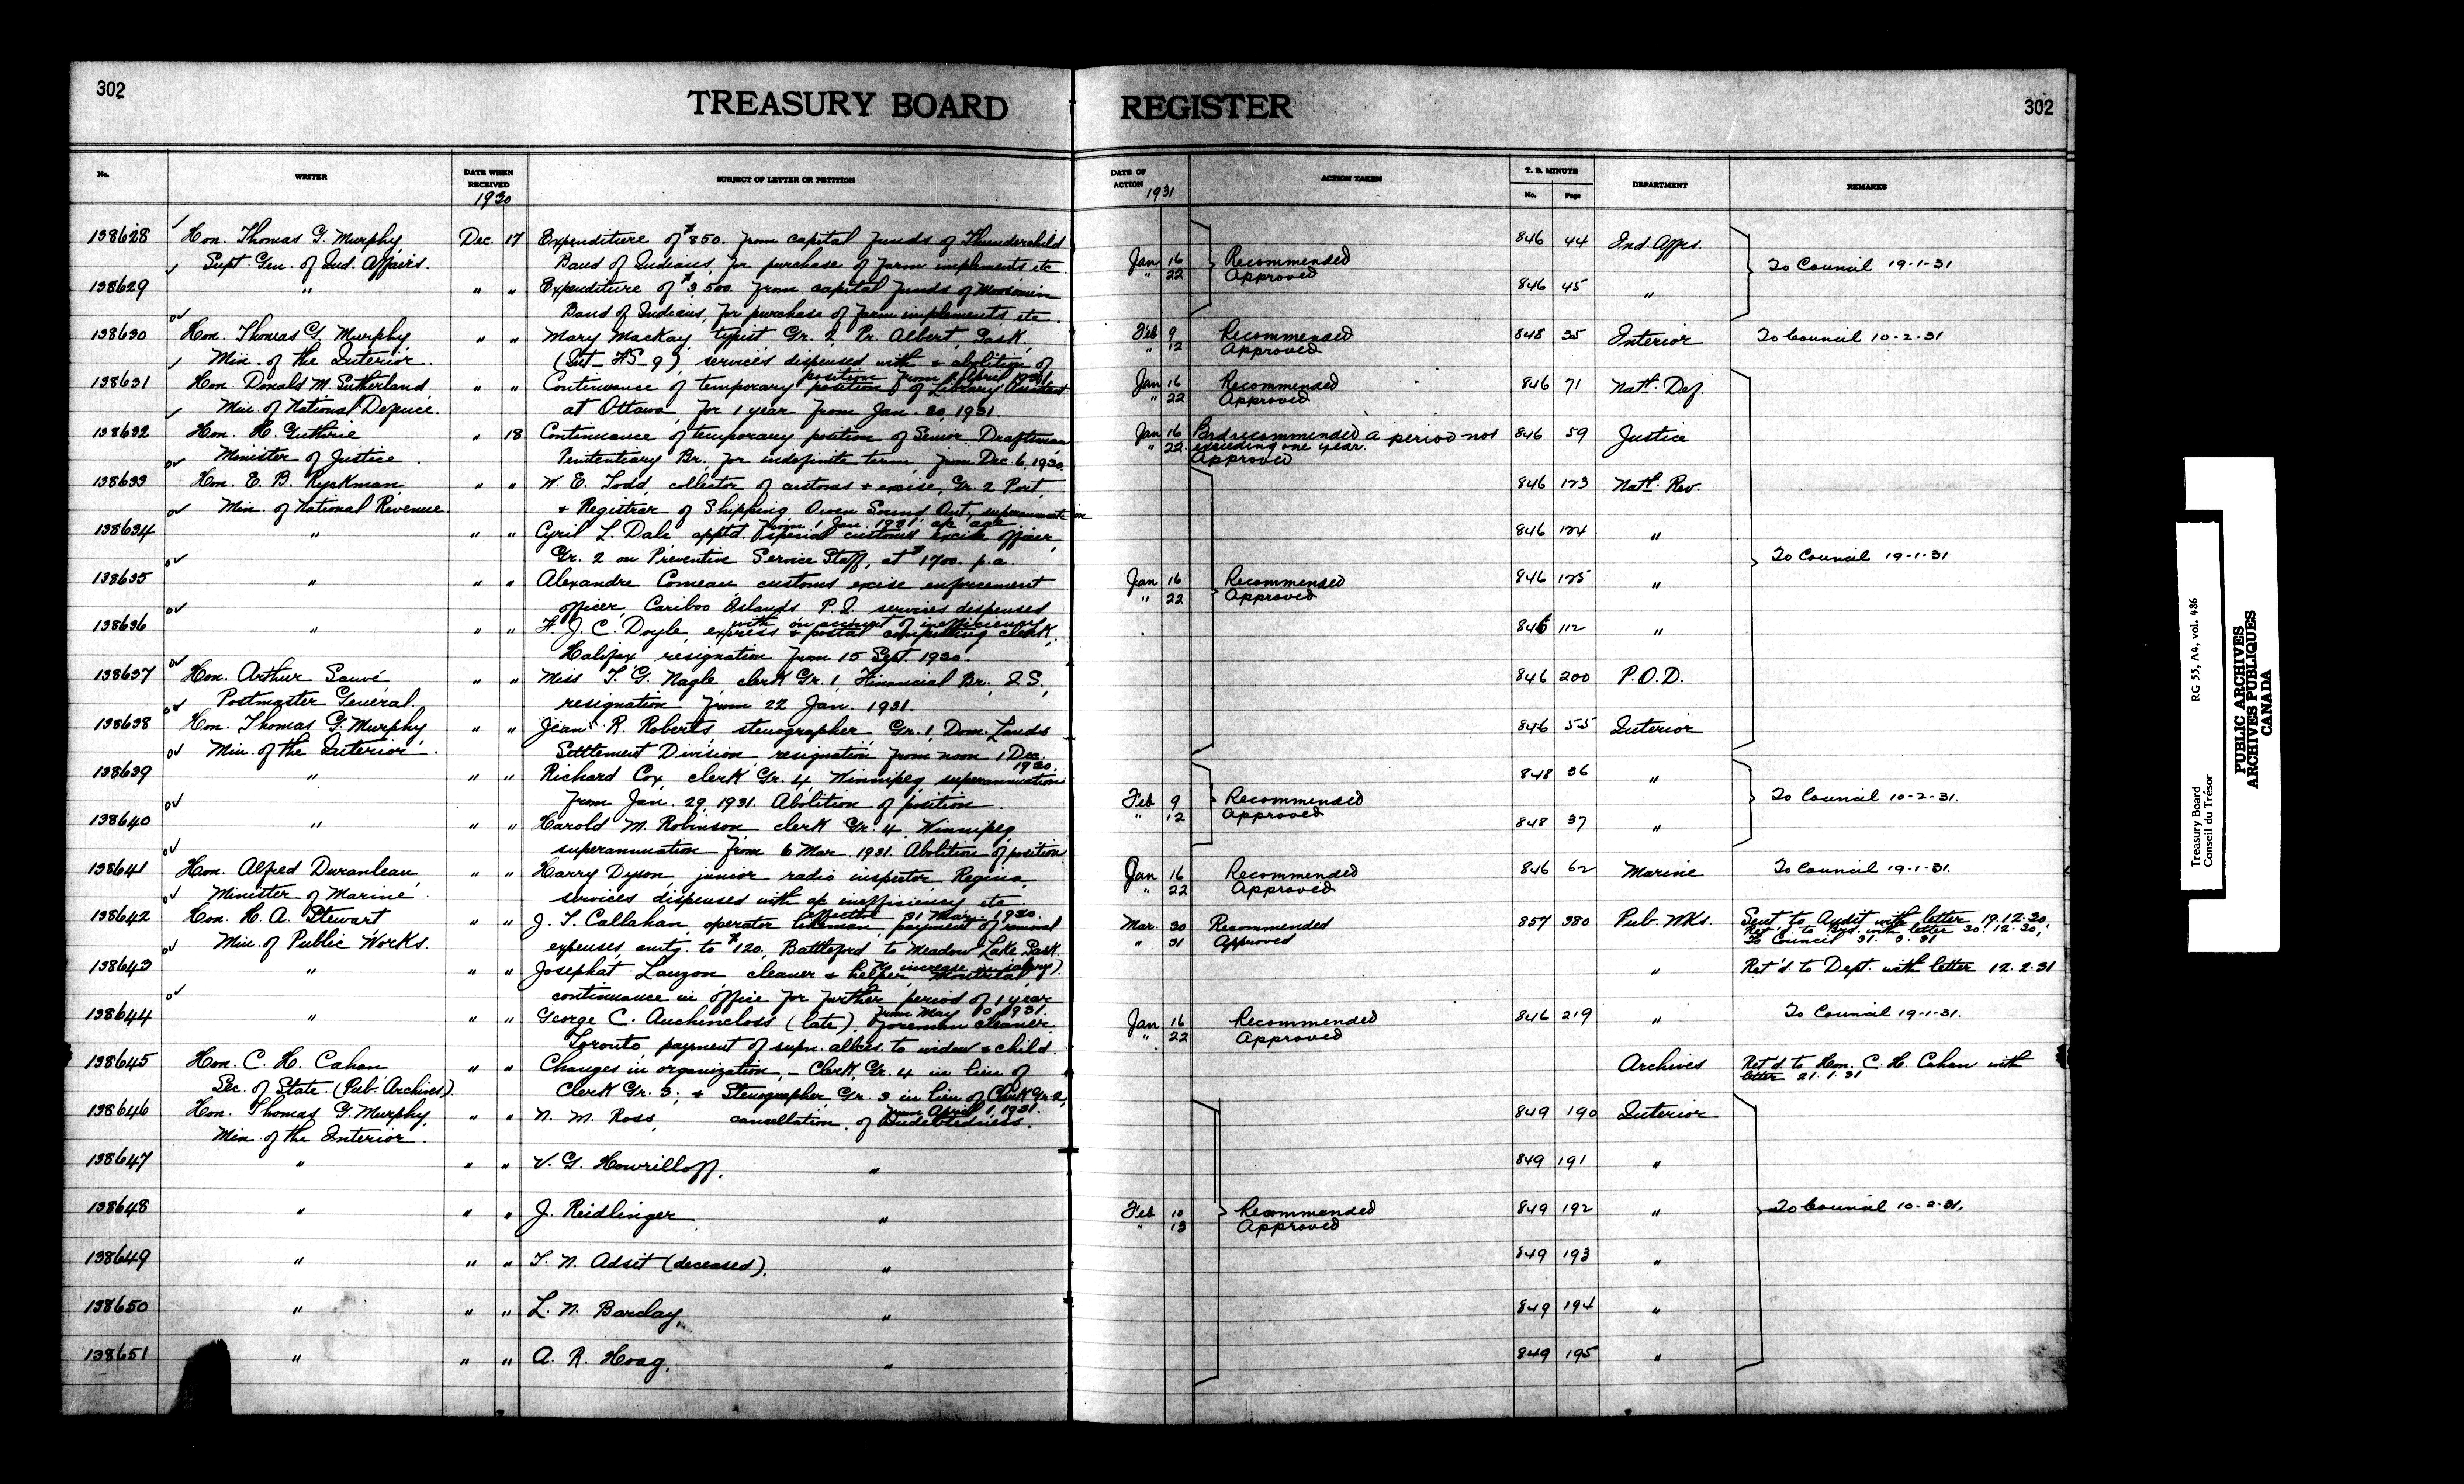 302
TREASURY BOARD REGISTER
302
No. WRITER DATE WHEN RECEIVED 1930 SUBJECT OF LETTER OR PETITION DATE OF ACTION 1931 ACTION TAKEN T. B. MINUTE No. Page DEPARTMENT REMARKS
138628 Hon. Thomas G. Murphy, Dec. 17 Expenditure of $850. from capital funds of Thunderchild 846 44 Ind. Affrs.
Supt. Gen. of Ind. Affairs. Band of Indians, for purchase of farm implements etc. Jan 16 Recommended To Council 19-1-31
" 22 Approved
138629 " " " Expenditure of $3,500. from capital funds of Moosomin 846 45 "
Band of Indians, for purchase of farm implements etc.
138630 Hon. Thomas G. Murphy " " Mary MacKay, typist Gr. 2, Pr. Albert, Sask. Feb 9 Recommended 848 35 Interior To Council 10-2-31
Min. of the Interior. (Int-HS-9) services dispensed with & abolition of " 12 Approved
position from 1 April 1931.
138631 Hon. Donald M. Sutherland " " Continuance of temporary position of Library Assistant Jan 16 Recommended 846 71 Natl. Def.
Min. of National Defence. at Ottawa, for 1 year from Jan. 30, 1931. " 22 Approved
138632 Hon. H. Guthrie " 18 Continuance of temporary position of Senior Draftsman Jan 16 Brd recommended a period not 846 59 Justice
Minister of Justice. Penitentiary Br. for indefinite term, from Dec. 6, 1930. " 22 exceeding one year.
Approved
138633 Hon. E. B. Ryckman, " " W. E. Todd, collector of customs & excise, Gr. 2 Port, 846 123 Natl. Rev.
Min. of National Revenue. & Registrar of Shipping Owen Sound Ont., superannuation
from 1 Jan. 1931. a/c age.
138634 " " " Cyril L. Dale, apptd. special customs excise officer, 846 124 "
Gr. 2 on Preventive Service Staff, at $1700. p.a. To Council 19-1-31
138635 " " " Alexandre Comeau customs excise enforcement Jan 16 Recommended 846 125 "
officer, Cariboo Islands P.Q. services dispensed " 22 Approved
with on account of inefficiency.
138636 " " " F. J. C. Doyle, express & postal computing clerk, 846 112 "
Halifax resignation from 15 Sept. 1930.
138637 Hon. Arthur Sauvé, " " Miss T. G. Nagle, clerk Gr. 1, Financial Br. I.S., 846 200 P.O.D.
Postmaster General. resignation from 22 Jan. 1931.
138638 Hon. Thomas G. Murphy, " " Jean R. Roberts, stenographer Gr. 1, Dom. Lands 846 55 Interior
Min. of the Interior. Settlement Division, resignation from noon 1 Dec.
1930.
138639 " " " Richard Cox, clerk Gr. 4, Winnipeg, superannuation 848 36 "
from Jan. 29, 1931. Abolition of position. Feb 9 Recommended To Council 10-2-31.
138640 " " " Harold M. Robinson, clerk Gr. 4, Winnipeg, " 12 Approved 848 37 "
superannuation from 6 Mar. 1931. Abolition of position
138641 Hon. Alfred Duranleau, " " Harry Dyson, junior radio inspector Regina, Jan 16 Recommended 846 62 Marine To Council 19-1-31.
Minister of Marine. services dispensed with a/c inefficiency etc. " 22 Approved
effective 31 Mar. 1930.
138642 Hon. H. A. Stewart " " J. T. Callahan, operator lineman, payment of removal Mar. 30 Recommended 857 380 Pub. Wks. Sent to Audit with letter 19.12.30.
Min. of Public Works. expenses, amtg. to $120, Battleford to Meadow Lake Sask. " 31 Approved Ret'd. to Brd. with letter 30.12.30.
(no increase in salary) To Council 31.3.31
138643 " " " Josephat Lauzon, cleaner & helper, Montreal, " Ret'd. to Dept. with letter 12.2.31
continuance in office for further period of 1 year
from May 10, 1931.
138644 " " " George C. Auchincloss (late), foreman cleaner Jan 16 Recommended 846 219 " To Council 19-1-31.
Toronto, payment of supn. allces. to widow & child. " 22 Approved
138645 Hon. C. H. Cahan " " Changes in organization, - Clerk Gr. 4 in lieu of Archives Ret'd. to Hon. C. H. Cahan with
Sec. of State. (Pub. Archives). Clerk Gr. 3; & Stenographer, Gr. 3 in lieu of Clerk Gr. 2, letter 21.1.31
from April 1, 1931.
138646 Hon. Thomas G. Murphy, " " N. M. Ross, cancellation of Indebtedness. 849 190 Interior
Min. of the Interior.
138647 " " " V. G. Howrilloff, " 849 191 "
138648 " " " J. Reidlinger " Feb 10 Recommended 849 192 " To Council 10-2-31.
" 13 Approved
138649 " " " T. N. Adsit (deceased). " 849 193 "
138650 " " " L. N. Barclay, " 849 194 "
138651 " " " A. R. Hoag, " 849 195 "
Treasury Board RG 55, A4, vol. 486
Conseil du Trésor
PUBLIC ARCHIVES
ARCHIVES PUBLIQUES
CANADA